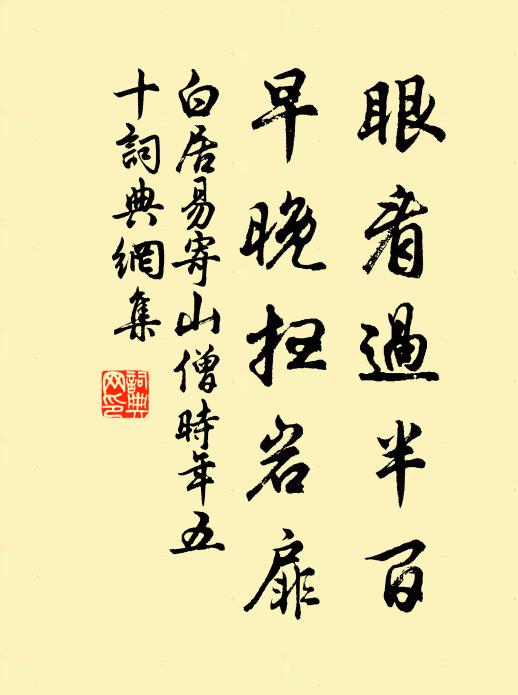 眼看過半百
早晚扫岩扉
白居易寄山僧時年五
十詞典網集
詞典网印